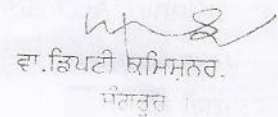 ਵਾ.ਡਿਪਟੀ ਕਮਿਸ਼ਨਰ.
ਸੰਗਰੂਰ